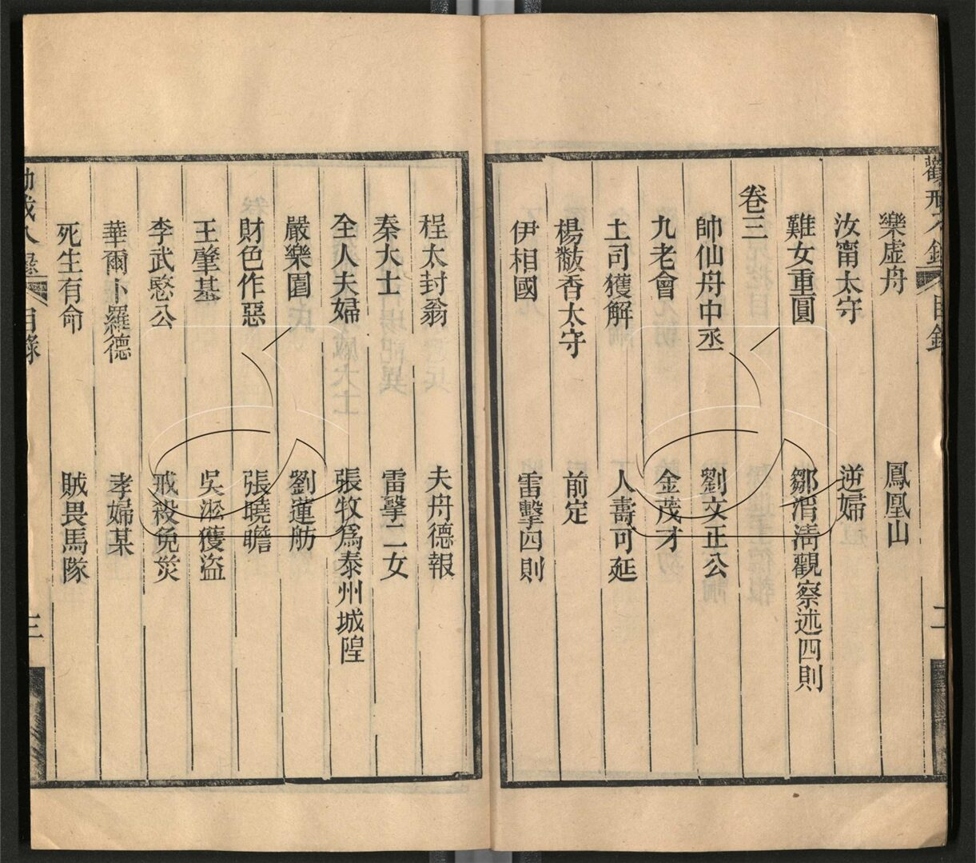 樂虛舟 鳳凰山
汝甯太守 逆婦
難女重圓 鄒渭清觀察述四則
卷三
帥仙舟中丞 劉文正公
九老會 金茂才
土司獲解 人壽可延
楊黻香太守 前定
伊相國 雷擊四則
程太封翁 夫舟德報
秦大士 雷擊二女
全人夫婦 張牧爲泰州城隍
嚴樂園 劉蓮舫
財色作惡 張曉瞻
王肇基 吳淞獲盜
李武愍公 戒殺免災
華爾卜羅德 孝婦某
死生有命 賊畏馬隊
目錄
三